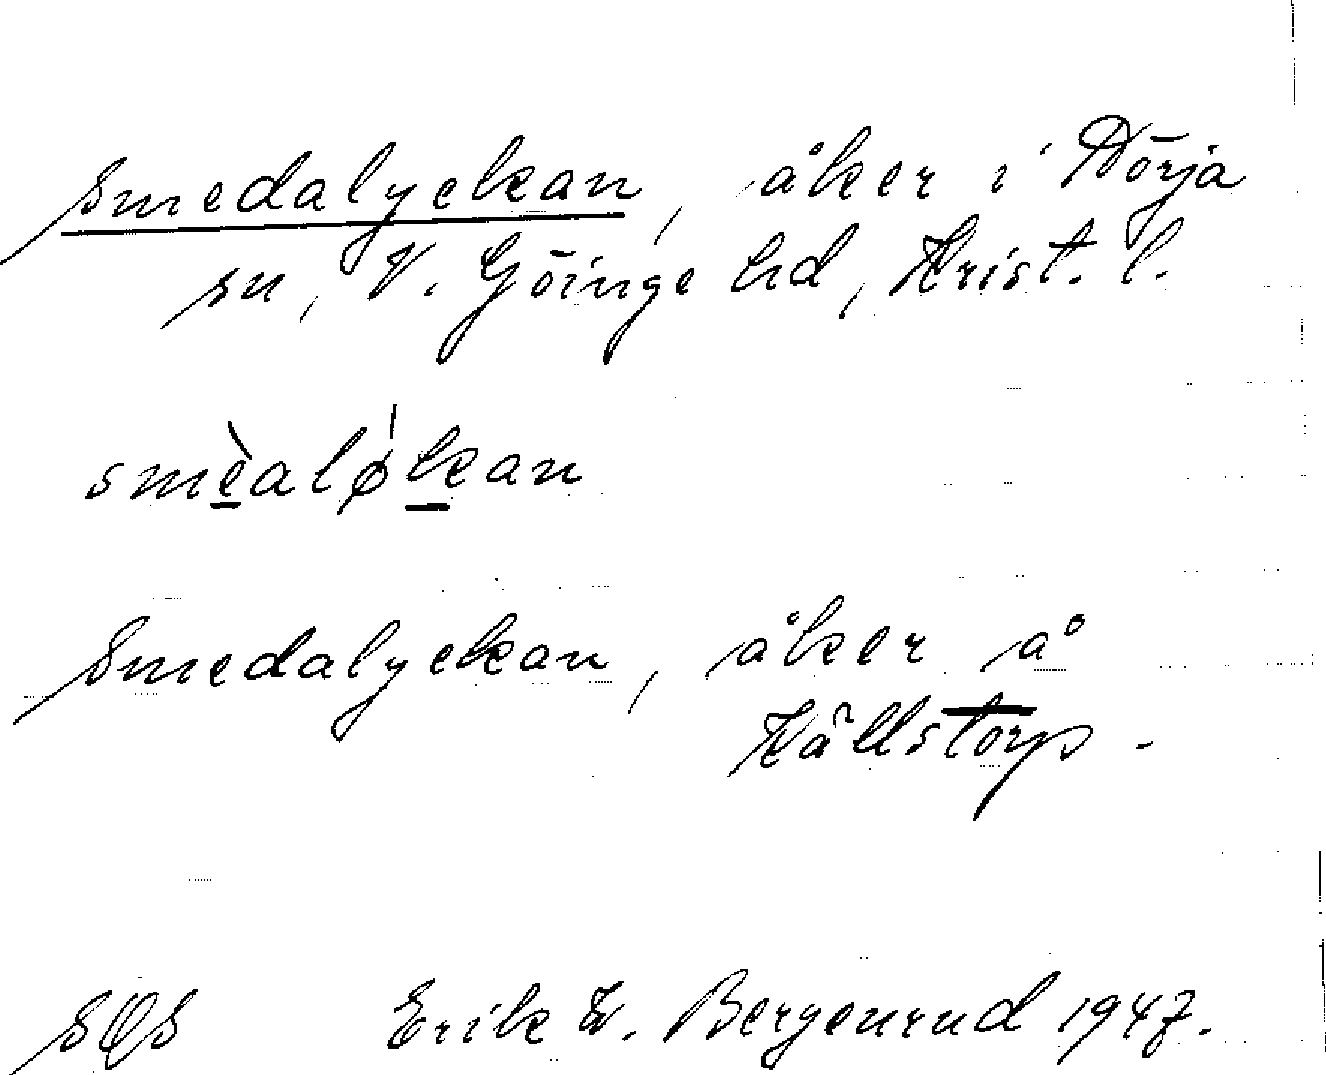 Smedalyckan, åker i Nörja
sn, V. Göinge hd, Krist. l.
smèalø̍kan
Smedalyckan, åker å
Källstorp.
SOS Erik W. Bergenrud 1947.